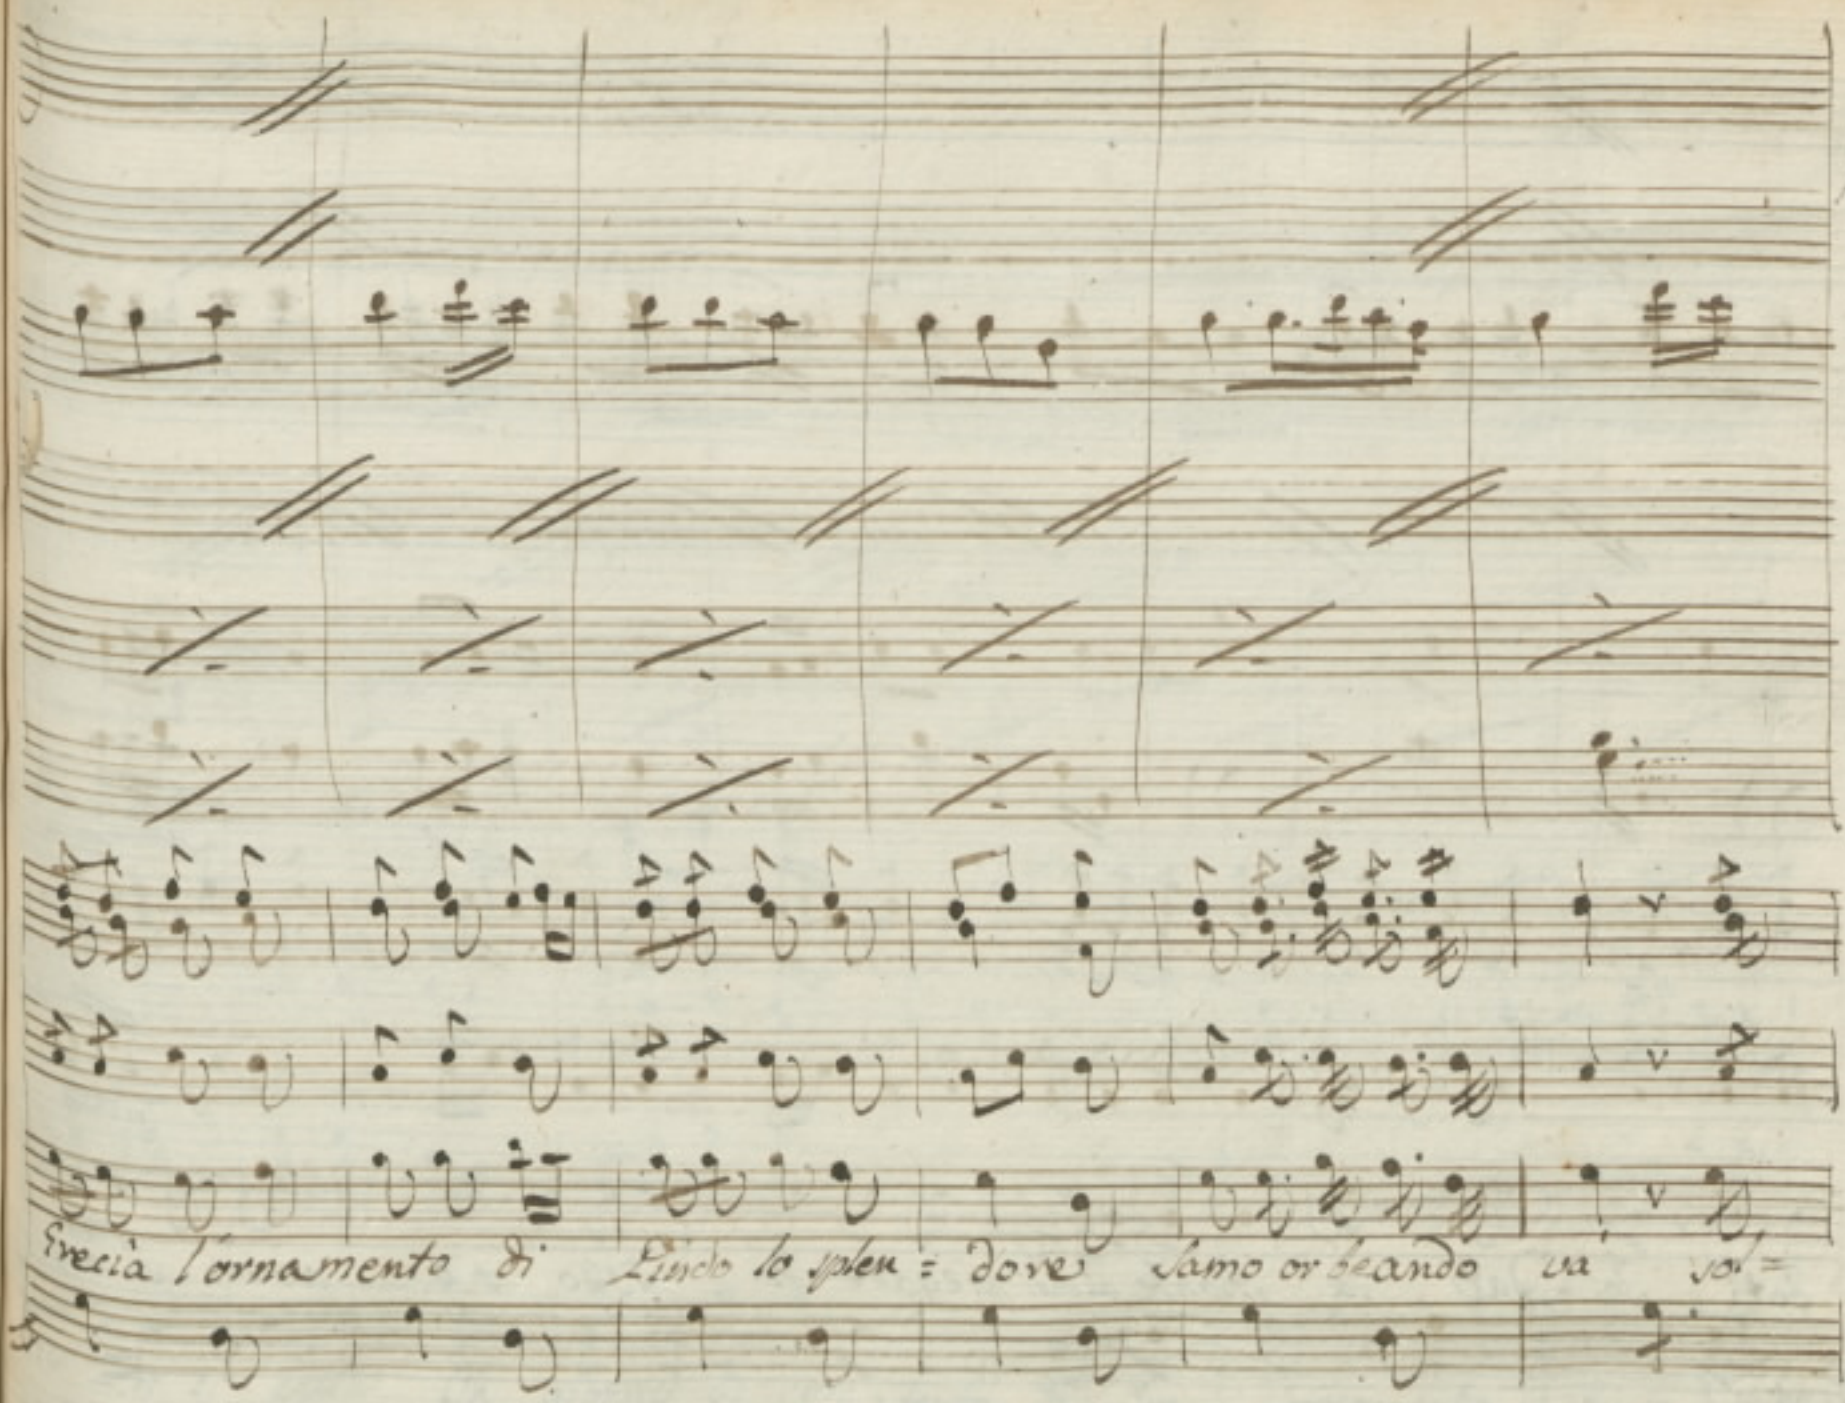 Grecia l'ornamento di Pindo lo splen = dore Samo or beando va sol =